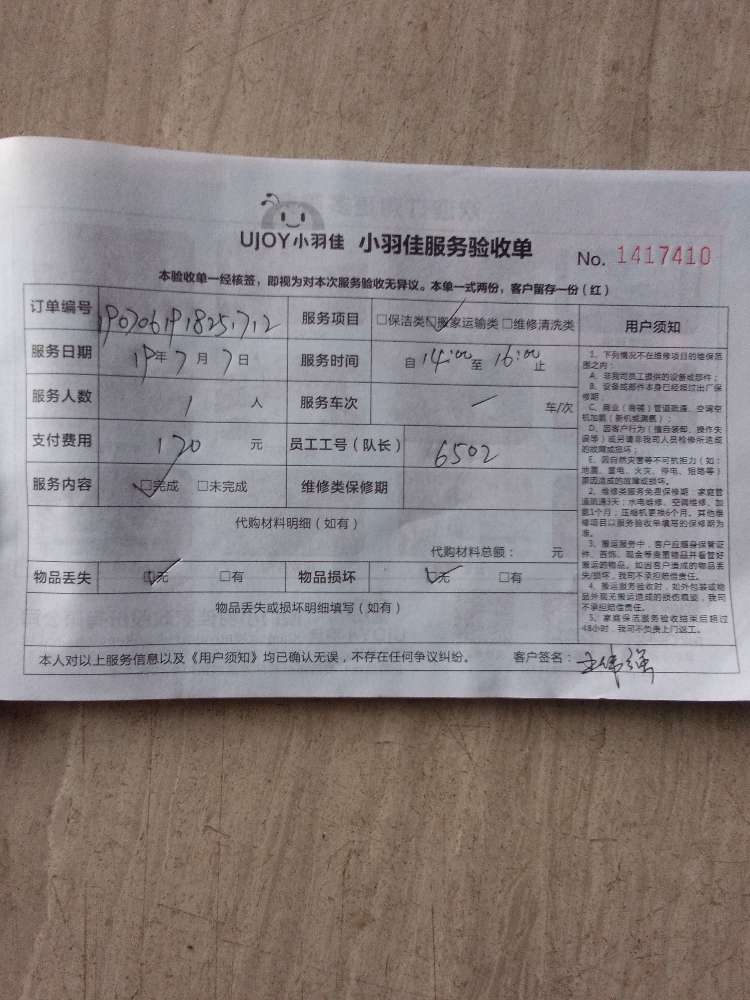 UJOY小羽佳 小羽佳服务验收单
No. 1417410
本验收单一经核签，即视为对本次服务验收无异议。本单一式两份，客户留存一份（红）
订单编号 1907061918251712 服务项目 □保洁类□搬家运输类□维修清洗类 用户须知
服务日期 19年7月7日 服务时间 自14:00至16:00止
服务人数 1 人 服务车次 一 车/次
支付费用 120 元 员工工号（队长） 6502
服务内容 □完成 □未完成 维修类保修期
代购材料明细（如有）
代购材料总额： 元
物品丢失 □无 □有 物品损坏 □无 □有
物品丢失或损坏明细填写（如有）
1、下列情况不在维修项目的维保范
围之内：
A、非我司员工提供的设备或部件；
B、设备或部件本身已经超过出厂保
修期；
C、商业（商铺）管道疏通、空调空
机加氟（新机或漏氟）；
D、因客户行为（擅自装卸、操作失
误等）或另请非我司人员检修所造成
的故障或损坏；
E、因自然灾害等不可抗拒力（如：
地震、雷电、火灾、停电、短路等）
原因造成的故障或损坏。
2、维修类服务免费保修期：家庭管
道疏通3天；水电维修、空调维修、加
氟1个月；压缩机更换6个月。其他维
修项目以服务验收单填写的保修期为
准。
3、搬运服务中，客户应随身保管证
件、首饰、现金等贵重物品并看管好
搬运的物品。如因客户造成的物品丢
失/损坏，我司不承担赔偿责任。
4、搬运服务验收时，如外包装或物
品外观无搬运造成的损伤痕迹，我司
不承担赔偿责任。
5、家庭保洁服务验收结束后超过
48小时，我司不负责上门返工。
本人对以上服务信息以及《用户须知》均已确认无误，不存在任何争议纠纷。 客户签名：王伟强